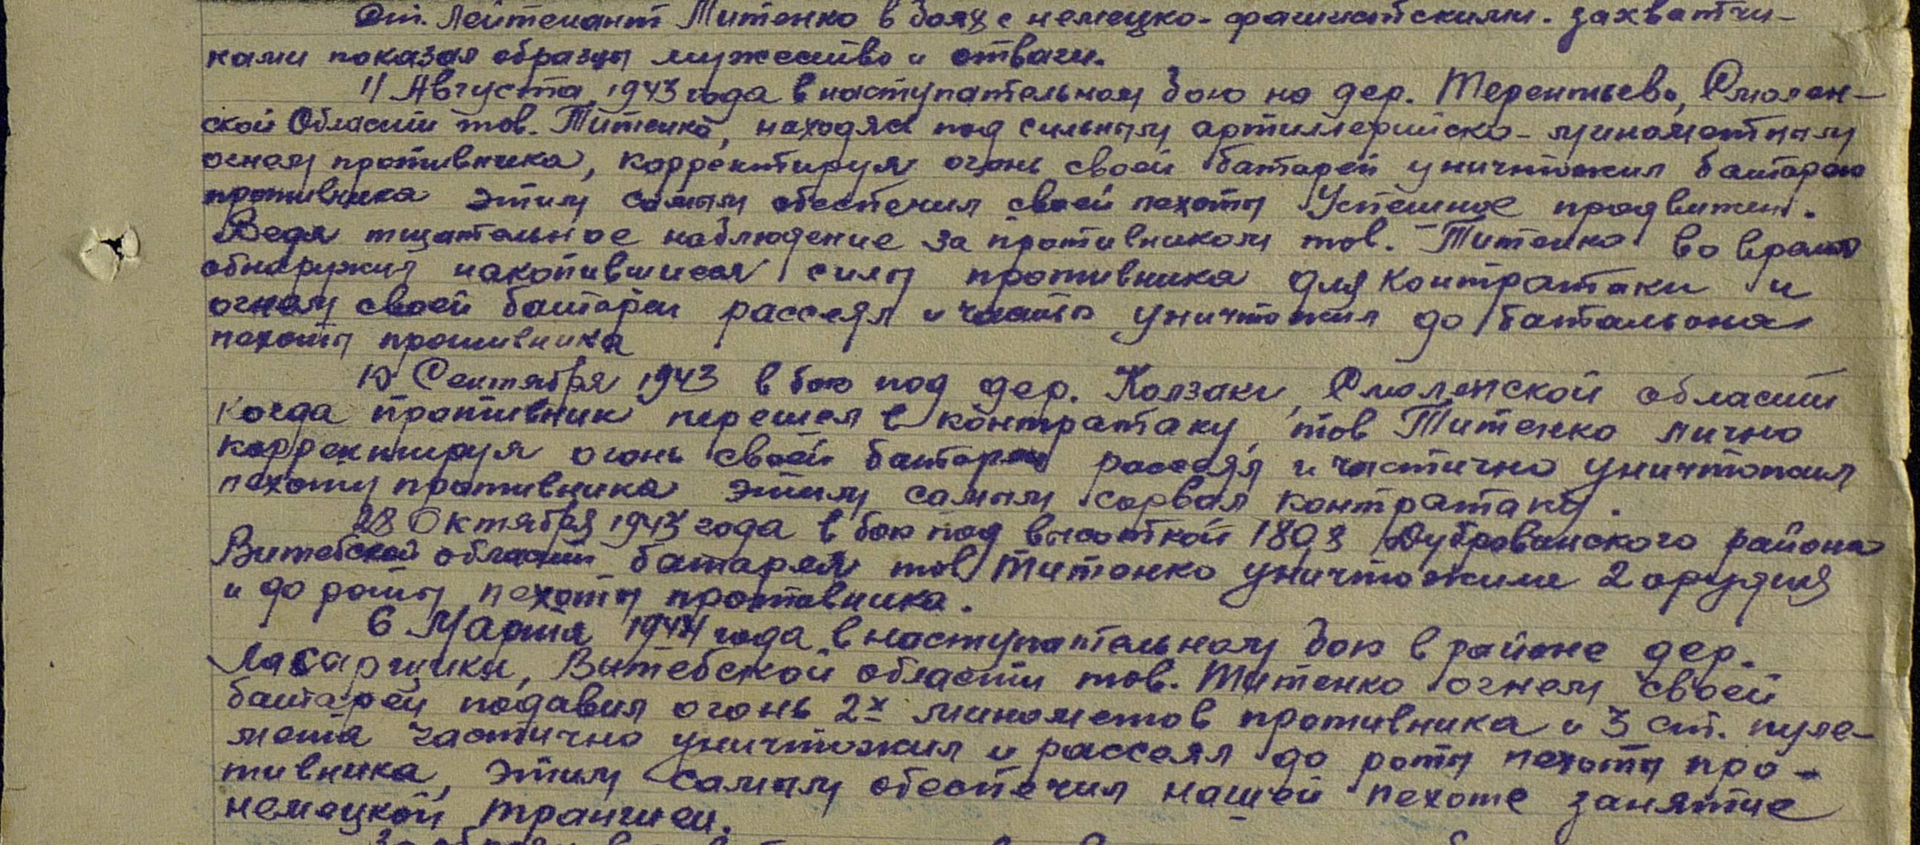 Ст. Лейтенант Титенко в боях с немецко-фашистскими захватчи-
ками показал образцы мужество и отваги.
11 Августа 1943 года в наступательном бою на дер. Терентьево, Смолен-
ской Области тов. Титенко, находясь под сильным артиллерийско-минометным
огнем противника, корректируя огонь своей батареи уничтожил батарею
противника этим самым обеспечил своей пехоты Успешное продвижен.
Ведя тщательное наблюдение за противником тов. Титенко во время
обнаружил накопившиеся силы противника для контратаки и
огнем своей батареи рассеял и часть уничтожил до батальона
пехоты противника
10 Сентября 1943 в бою под дер. Колзаки, Смоленской области
когда противник перешел в контратаку, тов Титенко лично
корректируя огонь своей батареи рассеял и частично уничтожил
пехоту противника этим самым сорвал контратаку.
28 Октября 1943 года в бою под высоткой 180,3 Дубровенского района
Витебской области батарея тов Титенко уничтожила 2 орудия
и до роты пехоты противника.
6 Марта 1944 года в наступательном бою в районе дер.
Витебской области тов. Титенко огнем своей
батареи подавил огонь 2х минометов противника и 3 ст. пуле-
мета частично уничтожил и рассеял до роты пехоты про-
тивника, этим самым обеспечил нашей пехоте занятие
немецкой траншеи.